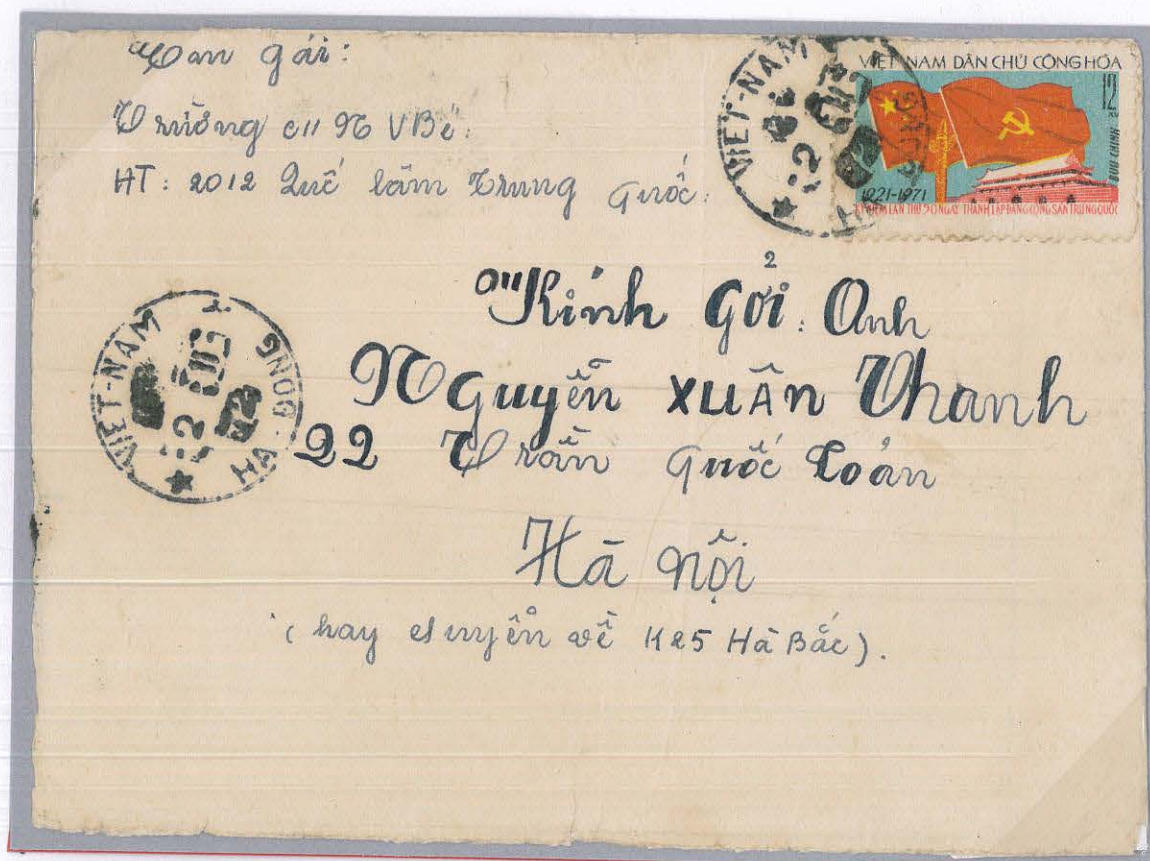 Con gái:
Trường cII N VBé.
HT: 2012 Quế lâm Trung Quốc.
VIỆT NAM DÂN CHỦ CỘNG HÒA
12 XU
BƯU CHÍNH
1921-1971
KỶ NIỆM LẦN THỨ 50 NGÀY THÀNH LẬP ĐẢNG CỘNG SẢN TRUNG QUỐC
VIET-NAM
2
Kính Gởi: Anh
Nguyễn XUÂN Thanh
22 Trần Quốc Toản
Hà Nội
(hay chuyển về K25 Hà Bắc).
VIET-NAM
HA-DONG